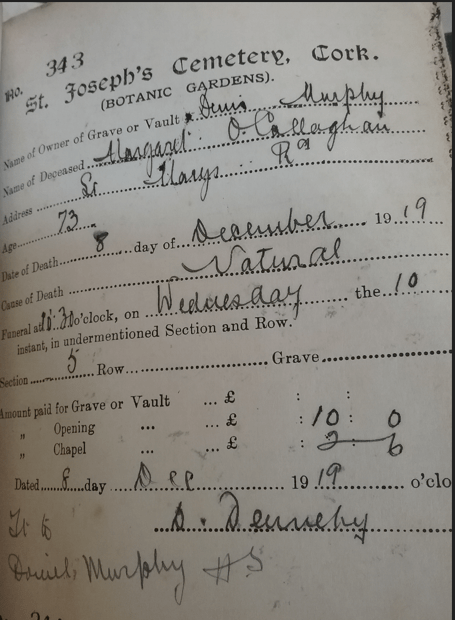 No. 343
St. Joseph's Cemetery, Cork.
(BOTANIC GARDENS).
Name of Owner of Grave or Vault Denis Murphy
Name of Deceased Margaret O'Callaghan
Address St Marys Rd
Age 73
Date of Death 8 day of December 1919
Cause of Death Natural
Funeral at 10.30 o'clock, on Wednesday the 10
instant, in undermentioned Section and Row.
Section 5 Row Grave
Amount paid for Grave or Vault ... £ : :
„ Opening ... £ : 10 : 0
„ Chapel ... £ : 2 : 6
Dated 8 day Dec 1919 o'clo
D. Dennehy
Daniel Murphy